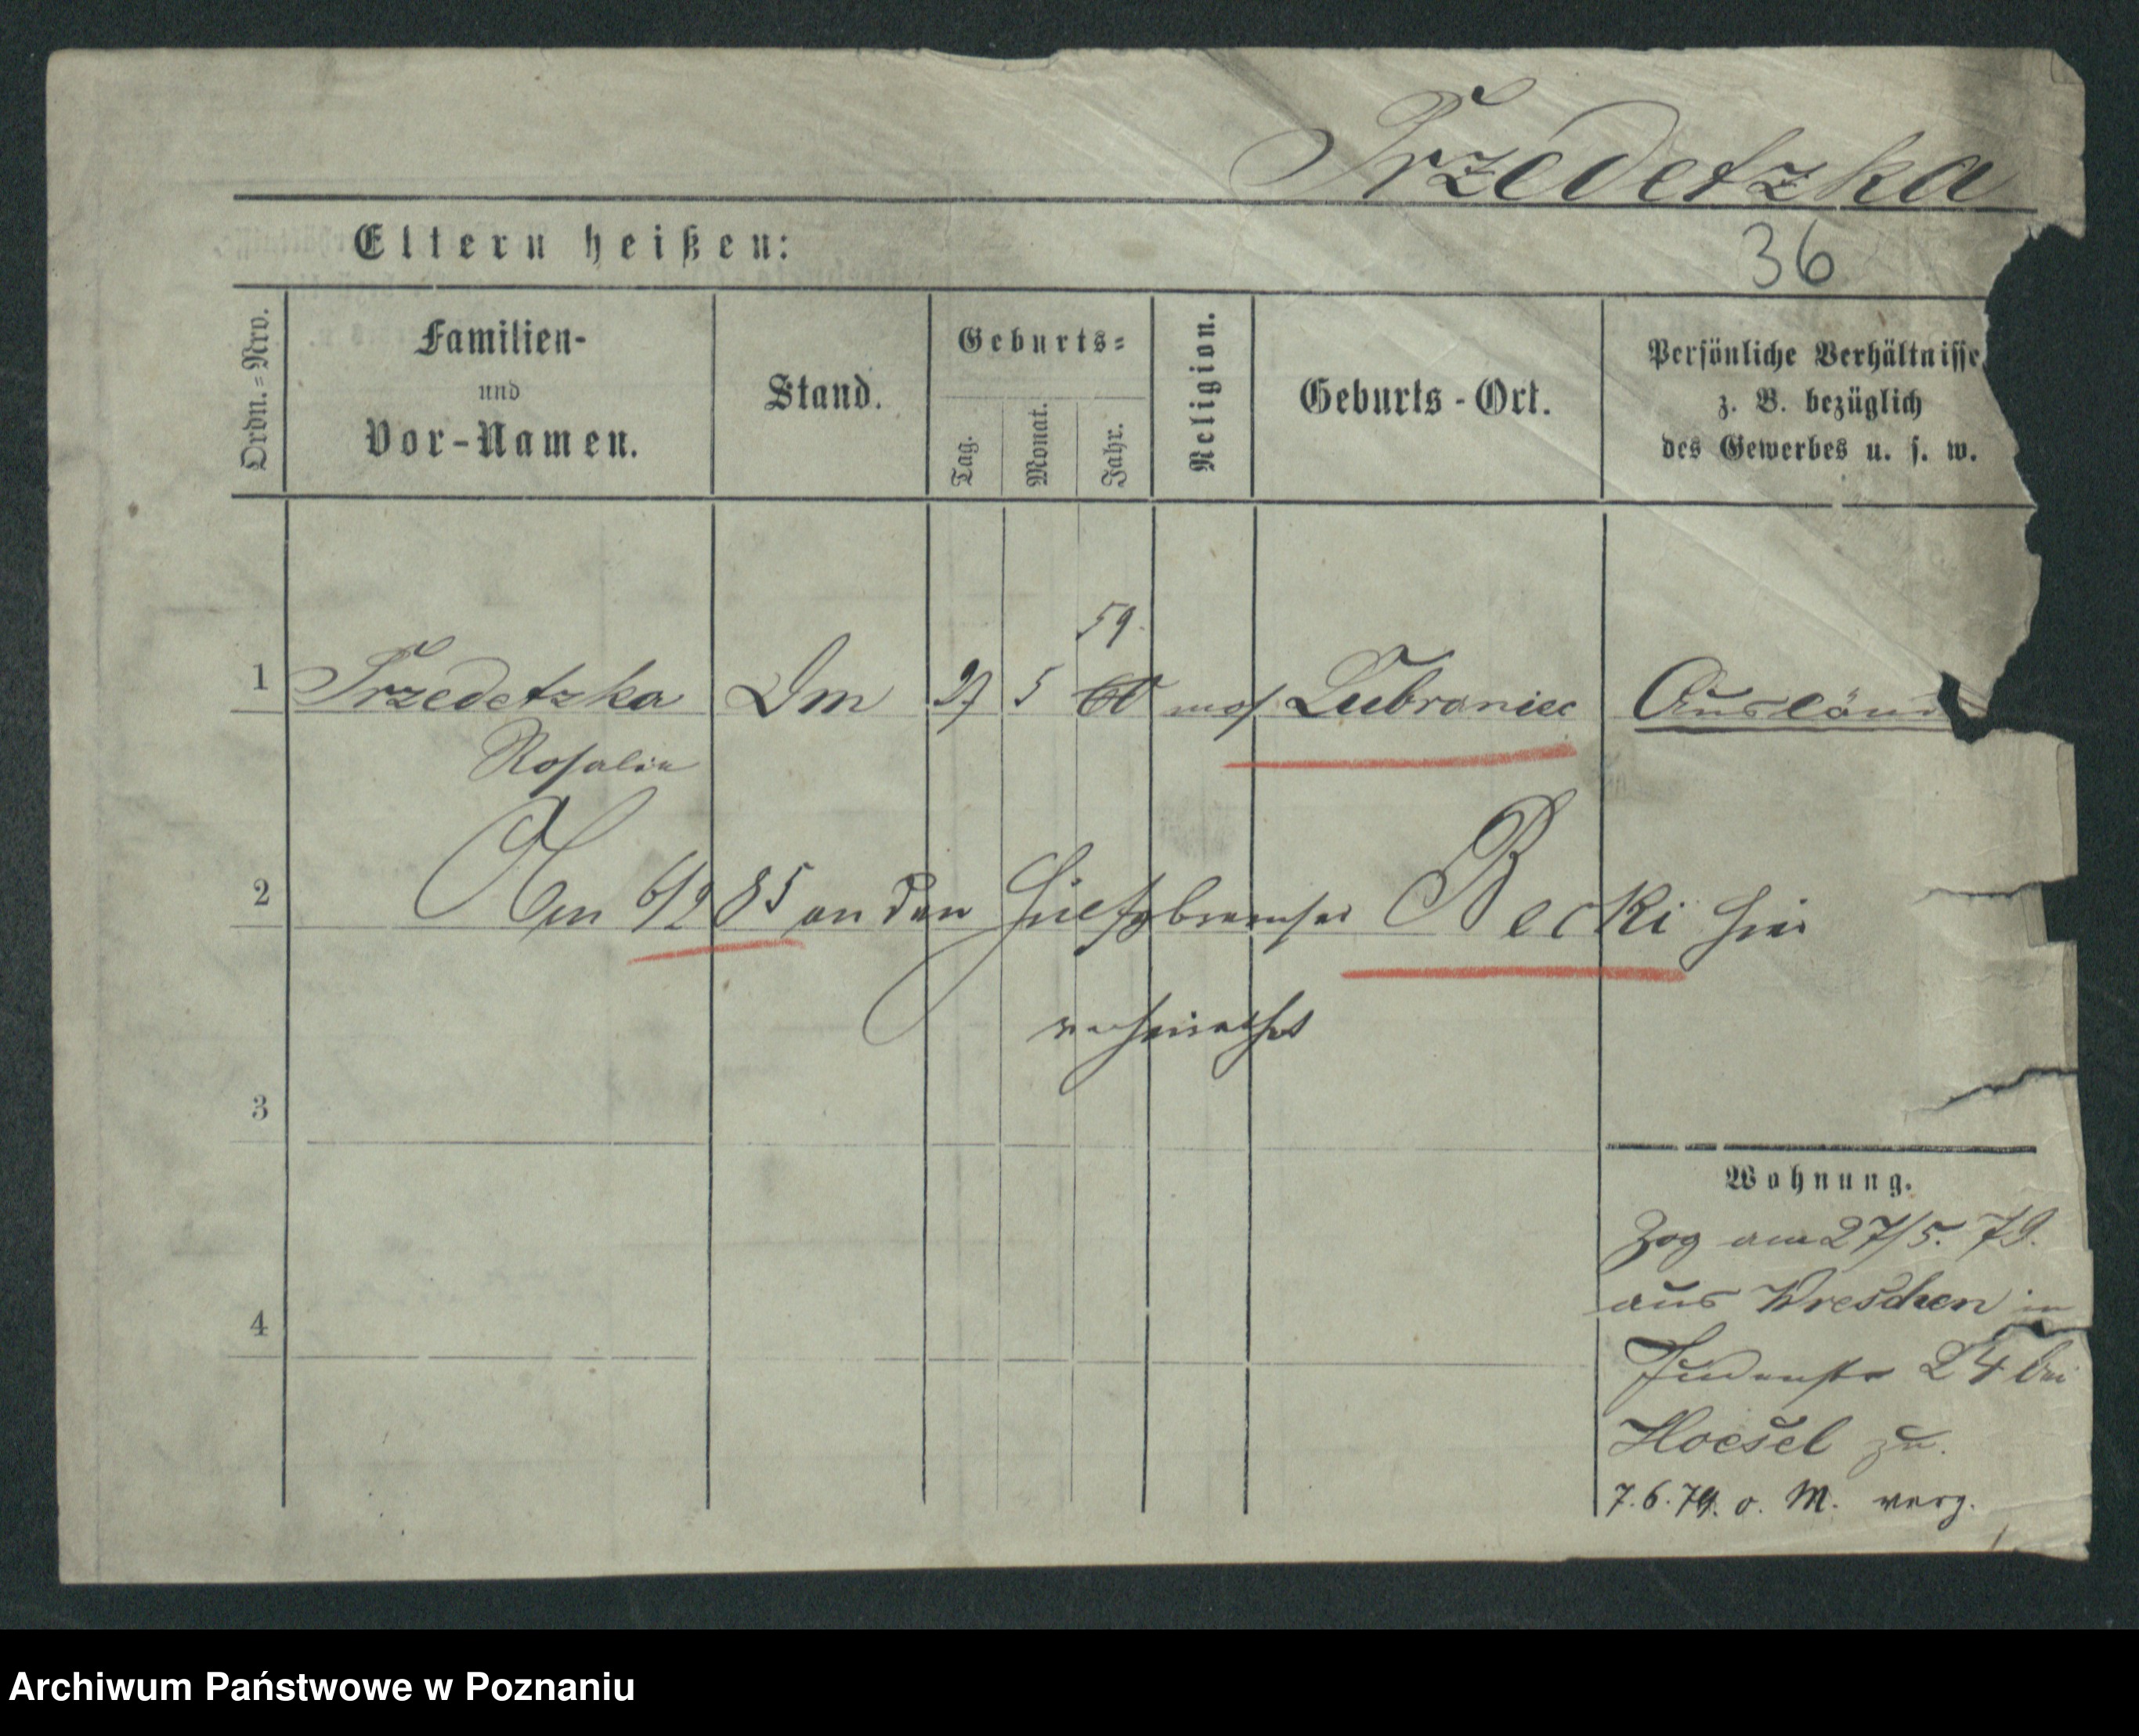 Trzedetzka
36
Eltern heißen:
Ordn.=Nro.
Familien-
und
Vor-Namen.
Stand.
Geburts=
Tag.
Monat.
Jahr.
Religion.
Geburts-Ort.
Persönliche Verhältnisse
z. B. bezüglich
des Gewerbes u. s. w.
59.
1 Trzedetzka 27 5 60 mos Lubraniec Ausländ
Rosalie
2 Am 6/2 85 an den Hilfsbremser Becki hier
verheirathet
3
Wohnung.
Zog am 27/5. 79.
aus Wreschen in
4
Judenstr 24 bei
Hoesel zu.
7.6.79. o. M. verz.
Archiwum Państwowe w Poznaniu